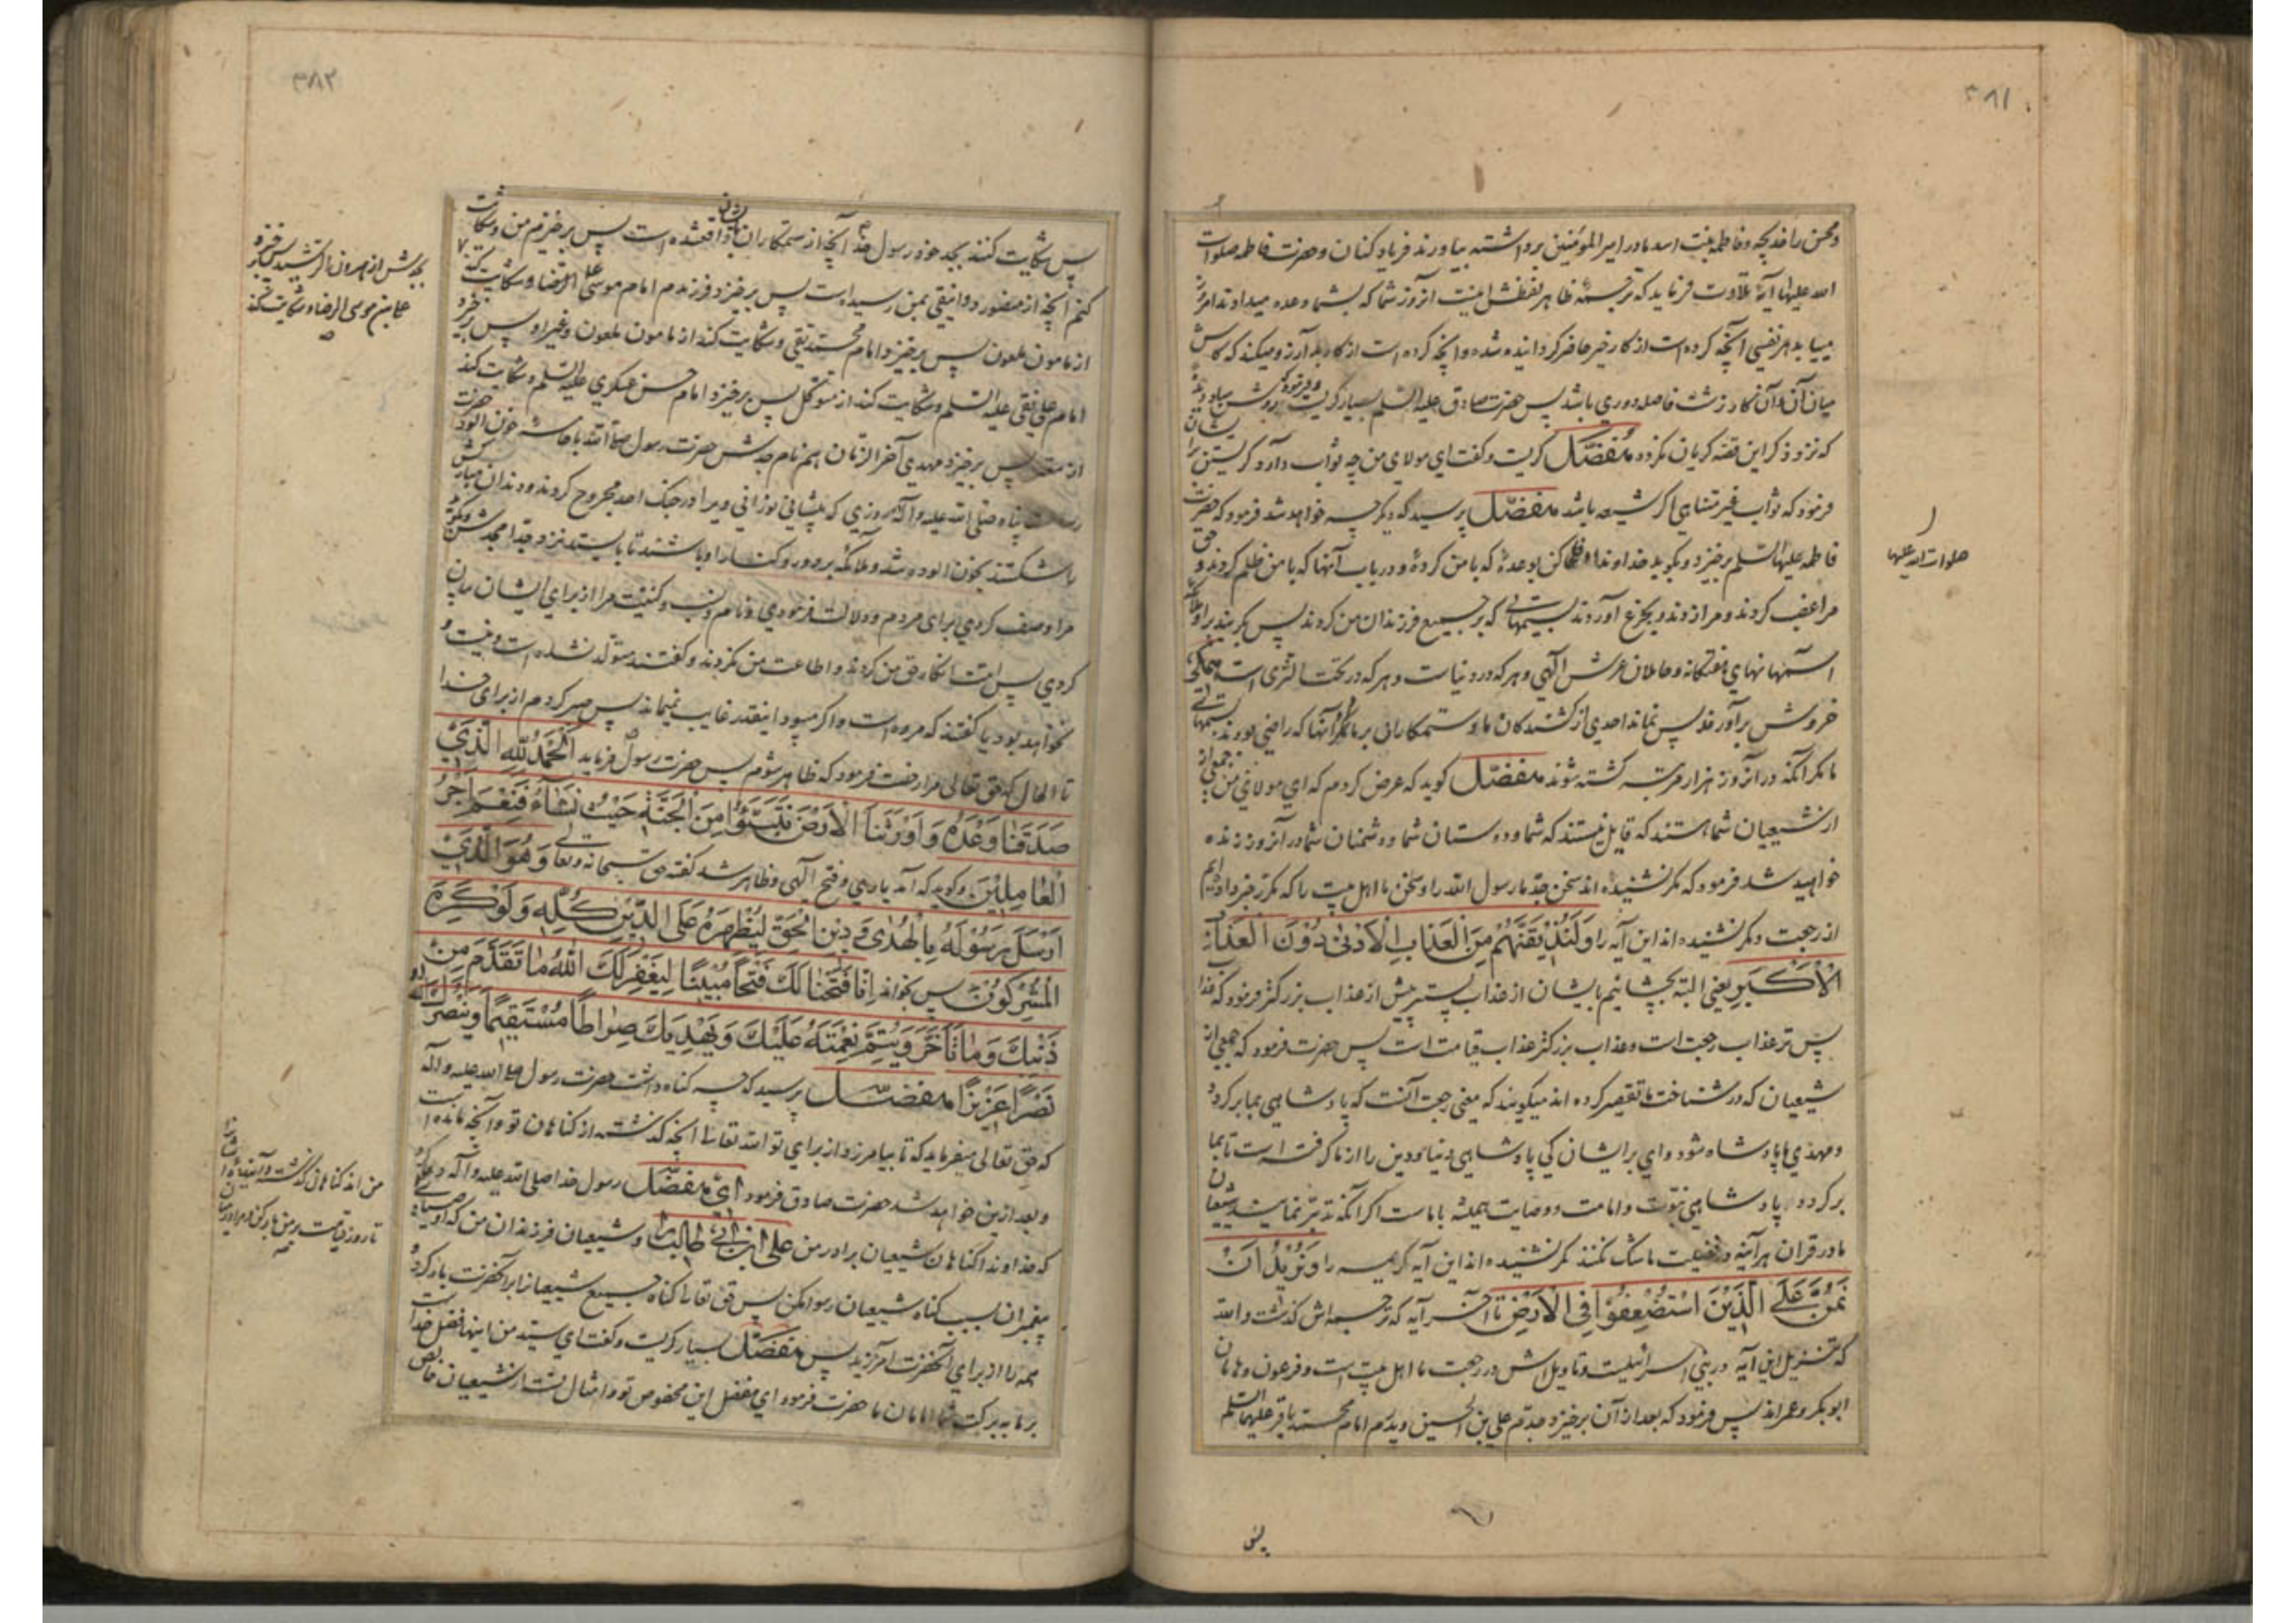 ۳۸۱
و محسن را خدیجه و فاطمه بنت اسد مادر امیر المؤمنین برداشته بیاورند فریاد کنان و حضرت فاطمه صلوات
الله علیها آیهٔ تلاوت فرماید که ترجمهٔ ظاهر لفظش اینست آنروز شما که بشما وعده میدادند امروز
میباید هر نفسی آنچه کرده است از کار خیر حاضر گردانیده شده و آنچه کرده است از کار بد آرزو میکند که کاش
میان آن و آن کار زشت فاصله دوری باشد پس حضرت صادق علیه السلم بسیار گریست و فرمود که روشن مباد دیدهٔ
که نزد ذکر این قصه گریان نگردد مفضّل گریست و گفت ای مولای من چه ثواب دارد گریستن بر ایشان
فرمود که ثواب غیر متناهی اگر شیعه باشد مفضّل پرسید که دیگر چه خواهد شد فرمود که حضرت
فاطمه علیها السّلم برخیزد و بگوید خداوندا وفا کن بوعدهٔ که با من کردهٔ و در باب آنها که با من ظلم کردند و حق
مرا غصب کردند و مرا زدند و بجزع آوردند بستمهائی که بر جمیع فرزندان من کردند پس بگریند بر او ملائکه
آسمانهای هفتگانه و حاملان عرش الٓهی و هر که در دنیاست و هر که در تحت الثری است همگی
خروش برآورند پس نماند احدی از کشندگان ما و ستمکاران بر ما و آنها که راضی بودند بستمهائی
ما مگر آنکه در آنروز هزار مرتبه کشته شوند مفضّل گوید که عرض کردم که ای مولای من جمعی از
از شیعیان شما هستند که قایل نیستند که شما و دوستان شما و دشمنان شما در آنروز زنده
خواهید شد فرمود که مگر نشنیده اند سخن جد ما رسول الله را و سخن ما اهل بیت را که مکرّر خبر داده‌ایم
از رجعت و مگر نشنیده اند این آیه را وَلَنُذِيقَنَّهُمْ مِنَ الْعَذَابِ الْأَدْنٰى دُوْنَ الْعَذَابِ
الْأَكْبَرِ یعنی البته بچشانیم بایشان از عذاب پستر پیش از عذاب بزرگتر فرمود که عذاب
پس تر عذاب رجعت است و عذاب بزرگتر عذاب قیامت است پس حضرت فرمود که جمعی از
شیعیان که در شناخت ما تقصیر کرده اند میگویند که معنی رجعت آنست که پادشاهی بما برگردد
و مهدی ما پادشاه شود وای بر ایشان کی پادشاهی دنیا و دین را از ما گرفته است تا بما
برگردد پادشاهی نبوّت و امامت و وصایت همیشه با ماست اگر آنکه تدبّر نمایند شیعیان
ما در قران هرآینه در فضیلت ما شک نکنند مگر نشنیده اند این آیه کریمه را وَنُرِيْدُ اَنْ
نَمُنَّ عَلَى الَّذِيْنَ اسْتُضْعِفُوْا فِي الْأَرْضِ تا آخر آیه که ترجمه اش گذشت والله
که تنزیل این آیه در بنی اسرائیلست و تاویل اش در رجعت ما اهل بیت است و فرعون و هامان
ابو بکر و عمراند پس فرمود که بعد از آن برخیزد جدّم علی بن الحسین و پدرم امام محمّد باقر علیهما السّلم
صلوات الله علیها
پس
۳۸۲
پس شکایت کنند بجد خود رسول خدا آنچه از ستمکاران بایشان واقعشده است پس برخیزم من و شکایت
کنم آنچه از منصور دوانیقی بمن رسیده است پس برخیزد فرزندم امام موسی علی الرّضا و شکایت کند
از مامون ملعون پس برخیزد امام محمّد تقی و شکایت کند از مامون ملعون و غیر او پس برخیزد
امام علی نقی علیه السّلم و شکایت کند از متوکّل پس برخیزد امام حسن عسکری علیه السّلم و شکایت کند
از معتز پس برخیزد مهدی آخر الزّمان همنام جدش حضرت رسول صلّی الله با جامه خون آلود حضرت
رسالت پناه صلّی الله علیه و آله روزی که پیشانی نورانی ویرا در جنگ احد مجروح کردند و دندان مبارکش
را شکستند بخون الوده شد و ملائکه بر دور و کنار او باشند تا بایستد نزد جد امجدش و بگوید
مرا وصف کردی برای مردم و دلالت فرمودی و نام و نسب و کنیت مرا از برای ایشان بیان
کردی پس امّت انکار حق من کردند و اطاعت من نکردند و گفتند متولّد نشده است و نیست و
نخواهد بود یا گفتند که مرده است و اگر میبود اینقدر غایب نمیماند پس صبر کردم از برای خدا
تا الحال که حق تعالی مرا رخصت فرمود که ظاهر شوم پس حضرت رسول فرماید اَلْحَمْدُ لِلّٰهِ الَّذِيْ
صَدَقَنَا وَعْدَهُ وَاَوْرَثَنَا الْاَرْضَ نَتَبَوَّءُ مِنَ الْجَنَّةِ حَيْثُ نَشَاءُ فَنِعْمَ اَجْرُ
الْعَامِلِيْنَ وگوید که آمد یاری و فتح الٓهی و ظاهر شد گفته حق سبحانه و تعالی وَهُوَ الَّذِيْ
اَرْسَلَ رَسُوْلَهُ بِالْهُدٰى وَ دِيْنِ الْحَقِّ لِيُظْهِرَهُ عَلَى الدِّيْنِ كُلِّهِ وَلَوْ كَرِهَ
الْمُشْرِكُوْنَ پس بخواند اِنَّا فَتَحْنَا لَكَ فَتْحًا مُبِيْنًا لِيَغْفِرَ لَكَ اللّٰهُ مَا تَقَدَّمَ مِنْ
ذَنْبِكَ وَمَا تَاَخَّرَ وَيُتِمَّ نِعْمَتَهُ عَلَيْكَ وَيَهْدِيَكَ صِرَاطًا مُسْتَقِيْمًا وَيَنْصُرَكَ اللّٰهُ
نَصْرًا عَزِيْزًا مفضّل پرسید که چه گناه داشت حضرت رسول صلی الله علیه و آله
که حق تعالی میفرماید که تا بیامرزد از برای تو الله تعالی آنچه گذشته از گناهان تو و آنچه مانده است
و بعد ازین خواهد شد حضرت صادق فرمود ای مفضّل رسول خدا صلی الله علیه و آله دعا کرد
که خداوندا گناهان شیعیان برادر من علی ابن ابی طالب را و شیعیان فرزندان من که اوصیاء
پیغمبران بسبب گناه شیعیان رسوا مکن پس حق تعالی گناه جمیع شیعیان را بر آنحضرت بار کرد و
همه را از برای آنحضرت آمرزید پس مفضّل بسیار گریست و گفت ای سیّد من اینها فضل خداست
بر ما به برکت شما امامان ما حضرت فرمود ای مفضل این مخصوص تو و امثال تست از شیعیان خالص
بجدش از هرون الرشید پس برخیزد
علی بن موسی الرضا و شکایت کند
من اند گناهان گذشته و آینده ایشانرا
تا روز قیامت بر من بار کن و مرا در میان